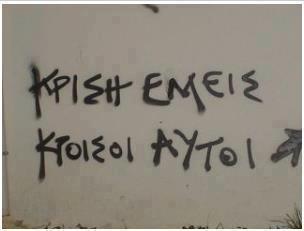 ΚΡΙΣΗ ΕΜΕΙΣ
ΚΡΟΙΣΟΙ ΑΥΤΟΙ